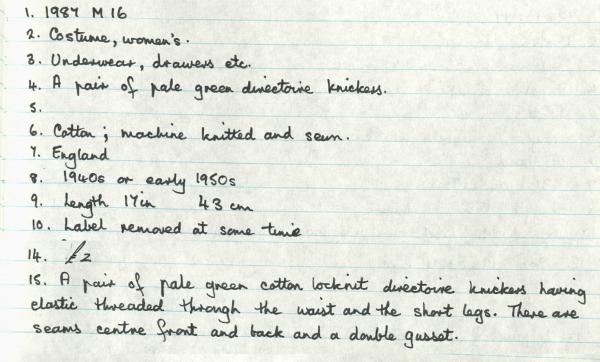 1. 1987 M 16
2. Costume, women's.
3. Underwear, drawers etc.
4. A pair of pale green directoire knickers.
5.
6. Cotton; machine knitted and sewn.
7. England
8. 1940s or early 1950s
9. Length 17in 43 cm
10. Label removed at some time
14. £2
15. A pair of pale green cotton locknit directoire knickers having
elastic threaded through the waist and the short legs. There are
seams centre front and back and a double gusset.